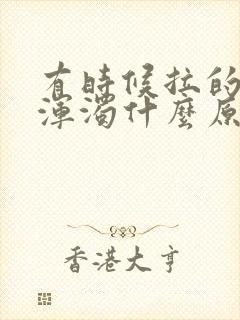 有時候拉的
渾濁什麼原
香港大亨